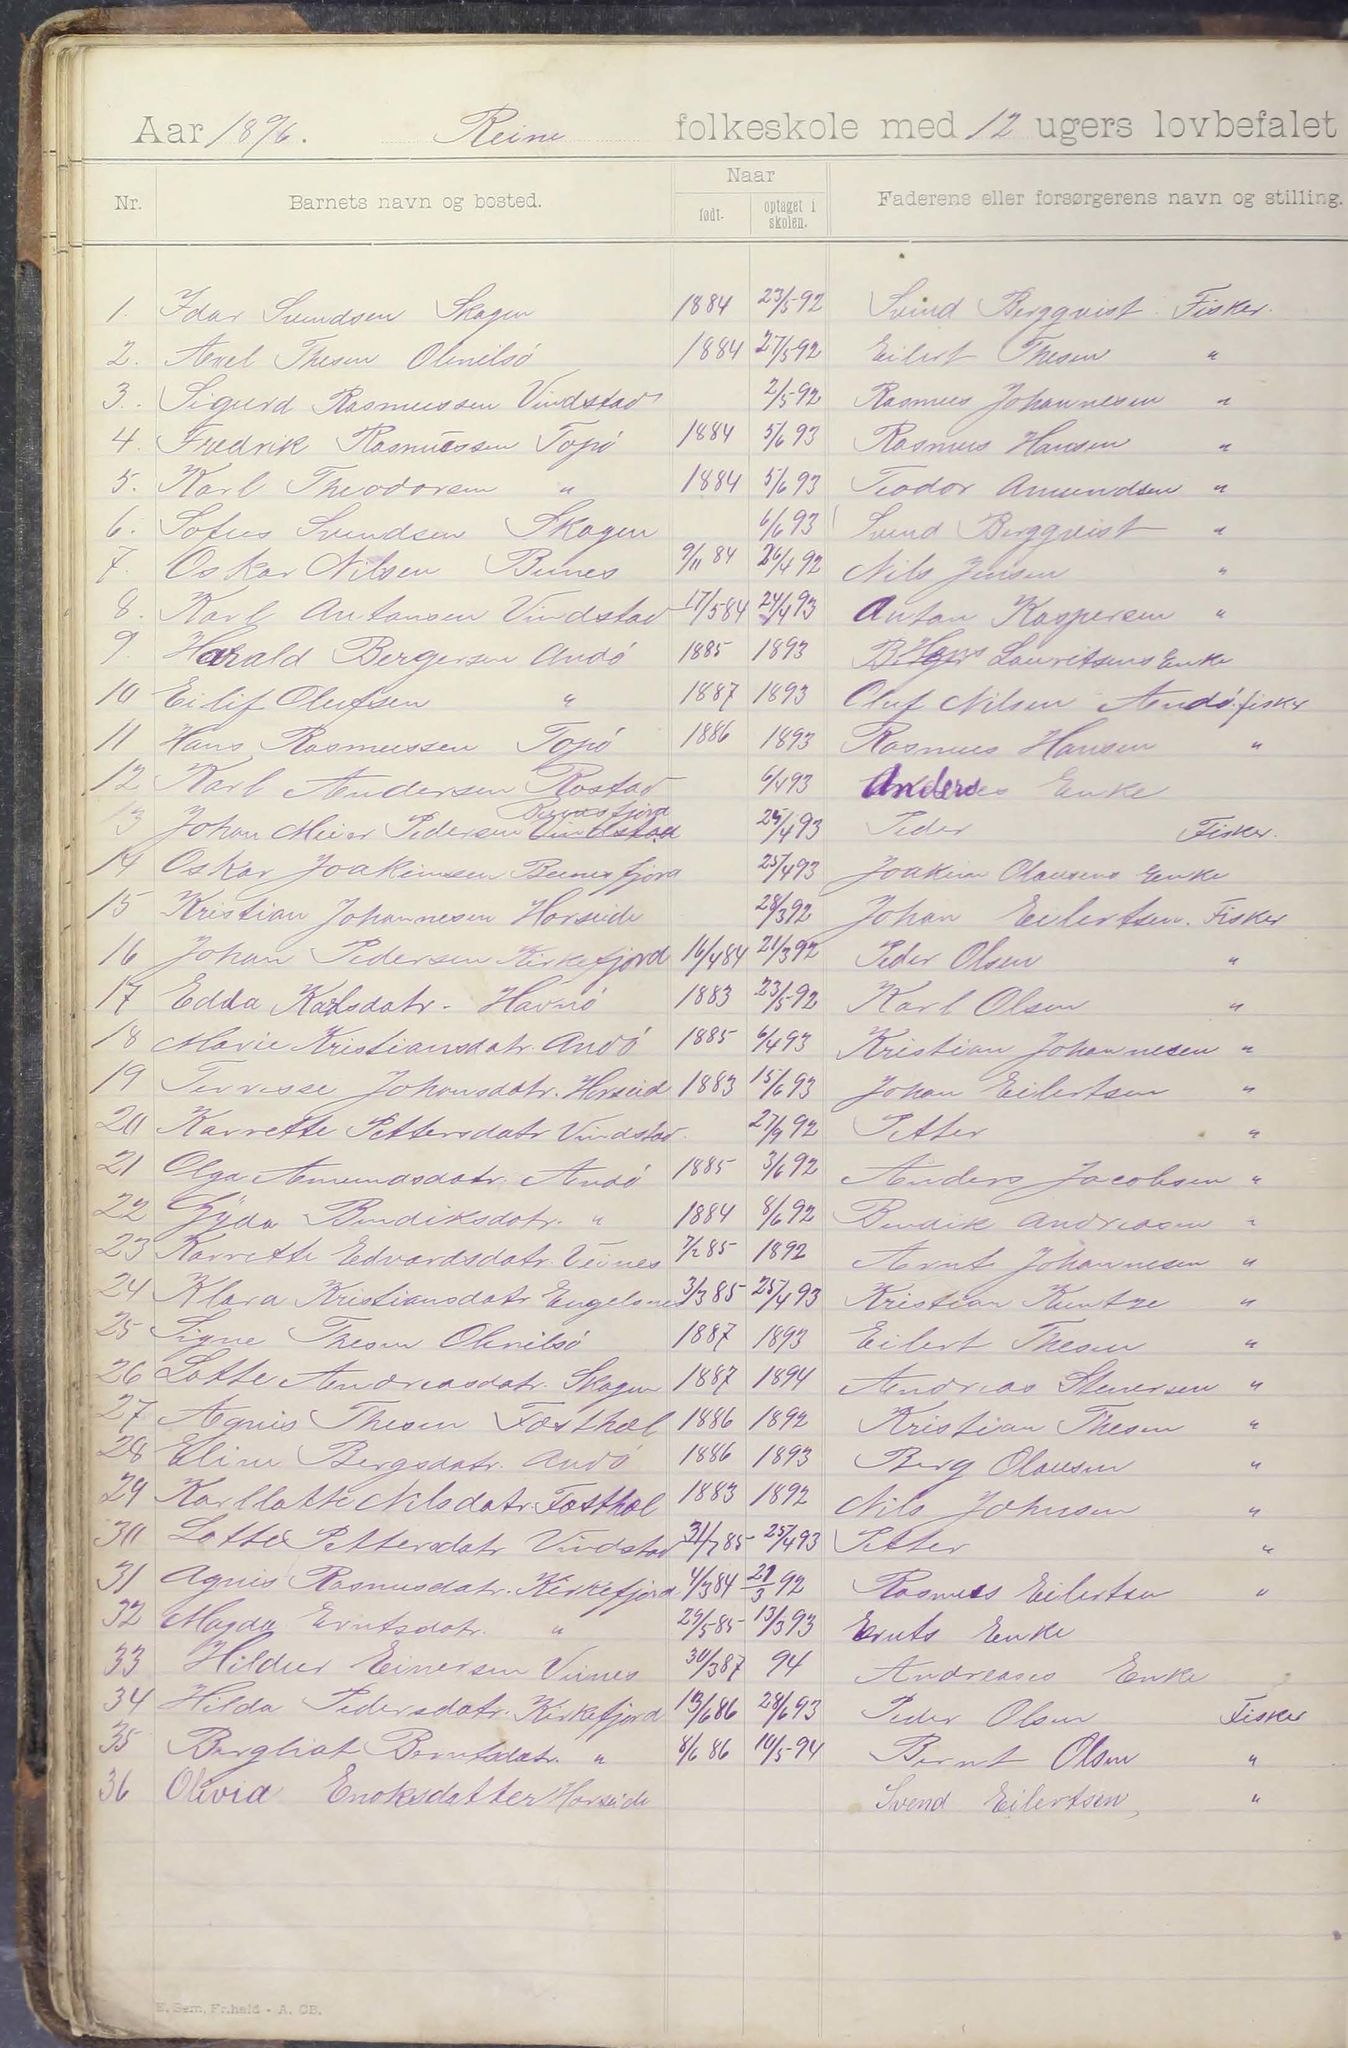 Aar 1896. Reine folkeskole med 12 ugers lovbefalet
Nr. Barnets navn og bosted. Naar født. optaget i skolen. Faderens eller forsørgerens navn og stilling.
1. Idar Svendsen Skagen 1884 23/5-92 Svend Bergqvist Fisker.
2. Axel Thesen Olenilsö 1884 27/5-92 Eilert Thesen "
3. Sigurd Rasmussen Vindstad 2/5-92 Rasmus Johannesen "
4. Fredrik Rasmussen Topö 1884 5/6 93 Rasmus Hansen "
5. Karl Theodorsen " 1884 5/6 93 Teodor Amundsen "
6. Sofus Svendsen Skagen 6/6 93 Svend Bergqvist "
7. Oskar Nilsen Bunes 9/11 84 26/4 92 Nils Jensen "
8. Karl Antonsen Vindstad 17/5 84 24/4 93 Anton Kaspersen "
9. Harald Bergersen Andö 1885 1893 Hans Lauritsens Enke
10 Eilif Olufsen " 1887 1893 Oluf Nilsen Andö. fisker
11 Hans Rasmussen Topö 1886 1893 Rasmus Hansen "
12 Karl Andersen Rostad 6/4 93 Anderses Enke
13 Johan Meier Pedersen Vindstad Bunesfjord 25/4 93 Peder Fisker.
14 Oskar Joakimsen Bunesfjord 25/4 93 Joakim Olausens Enke
15 Kristian Johannesen Horseide 28/3 92 Johan Eilertsen. Fisker
16 Johan Pedersen Kirkefjord 16/4 84 21/3 92 Peder Olsen "
17 Edda Karlsdatr. Havnö 1883 23/5-92 Karl Olsen "
18 Marie Kristiansdatr. Andö 1885 6/4 93 Kristian Johannesen "
19 Terresse Johansdatr. Horseid 1883 15/6 93 Johan Eilertsen "
20 Karrette Pettersdatr Vindstad. 27/9 92 Petter "
21 Olga Amundsdatr. Andö 1885 3/6 92 Anders Jacobsen "
22 Gyda Bendiksdatr. " 1884 8/6 92 Bendik Andreasen "
23 Karrette Edvardsdatr. Veines 7/2 85 1892 Arnt Johannesen "
24 Klara Kristiansdatr Engelsnes 3/3 85 25/4 93 Kristian Kuntze "
25 Signe Thesen Olenilsö 1887 1893 Eilert Thesen "
26 Lotte Andreasdatr. Skagen 1887 1894 Andreas Stenersen "
27 Agnes Thesen Fosthæl 1886 1892 Kristian Thesen "
28 Eline Bergsdatr. Andö 1886 1893 Berg Olausen "
29 Karllotte Nilsdatr. Fosthæl 1883 1892 Nils Johnsen "
30 Lotte Pettersdatr Vindstad 31/7 85 25/4 93 Petter "
31 Agnes Rasmusdatr. Kirkefjord 4/3 84 29/3 92 Rasmus Eilertsen "
32 Magda Erntsdatr. " 29/5 85 13/3 93 Ernts Enke
33 Hildur Einersen Vines 30/3 87 94 Andreases Enke
34 Hilda Pedersdatr. Kirkefjord 13/6 86 28/6 93 Peder Olsen Fisker
35 Bergliot Berntsdatr. " 8/6 86 10/5-94 Bernt Olsen "
36 Olivia Enoksdatter Horseide Svend Eilertsen, "
E. Sem, Fr.hald - A. CB.